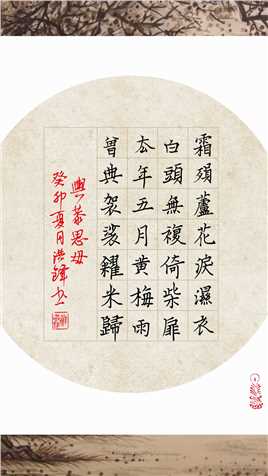 霜殞蘆花淚濕衣
白頭無複倚柴扉
去年五月黃梅雨
曾典袈裟糴米歸
與恭思母
癸卯夏月洪鐸书